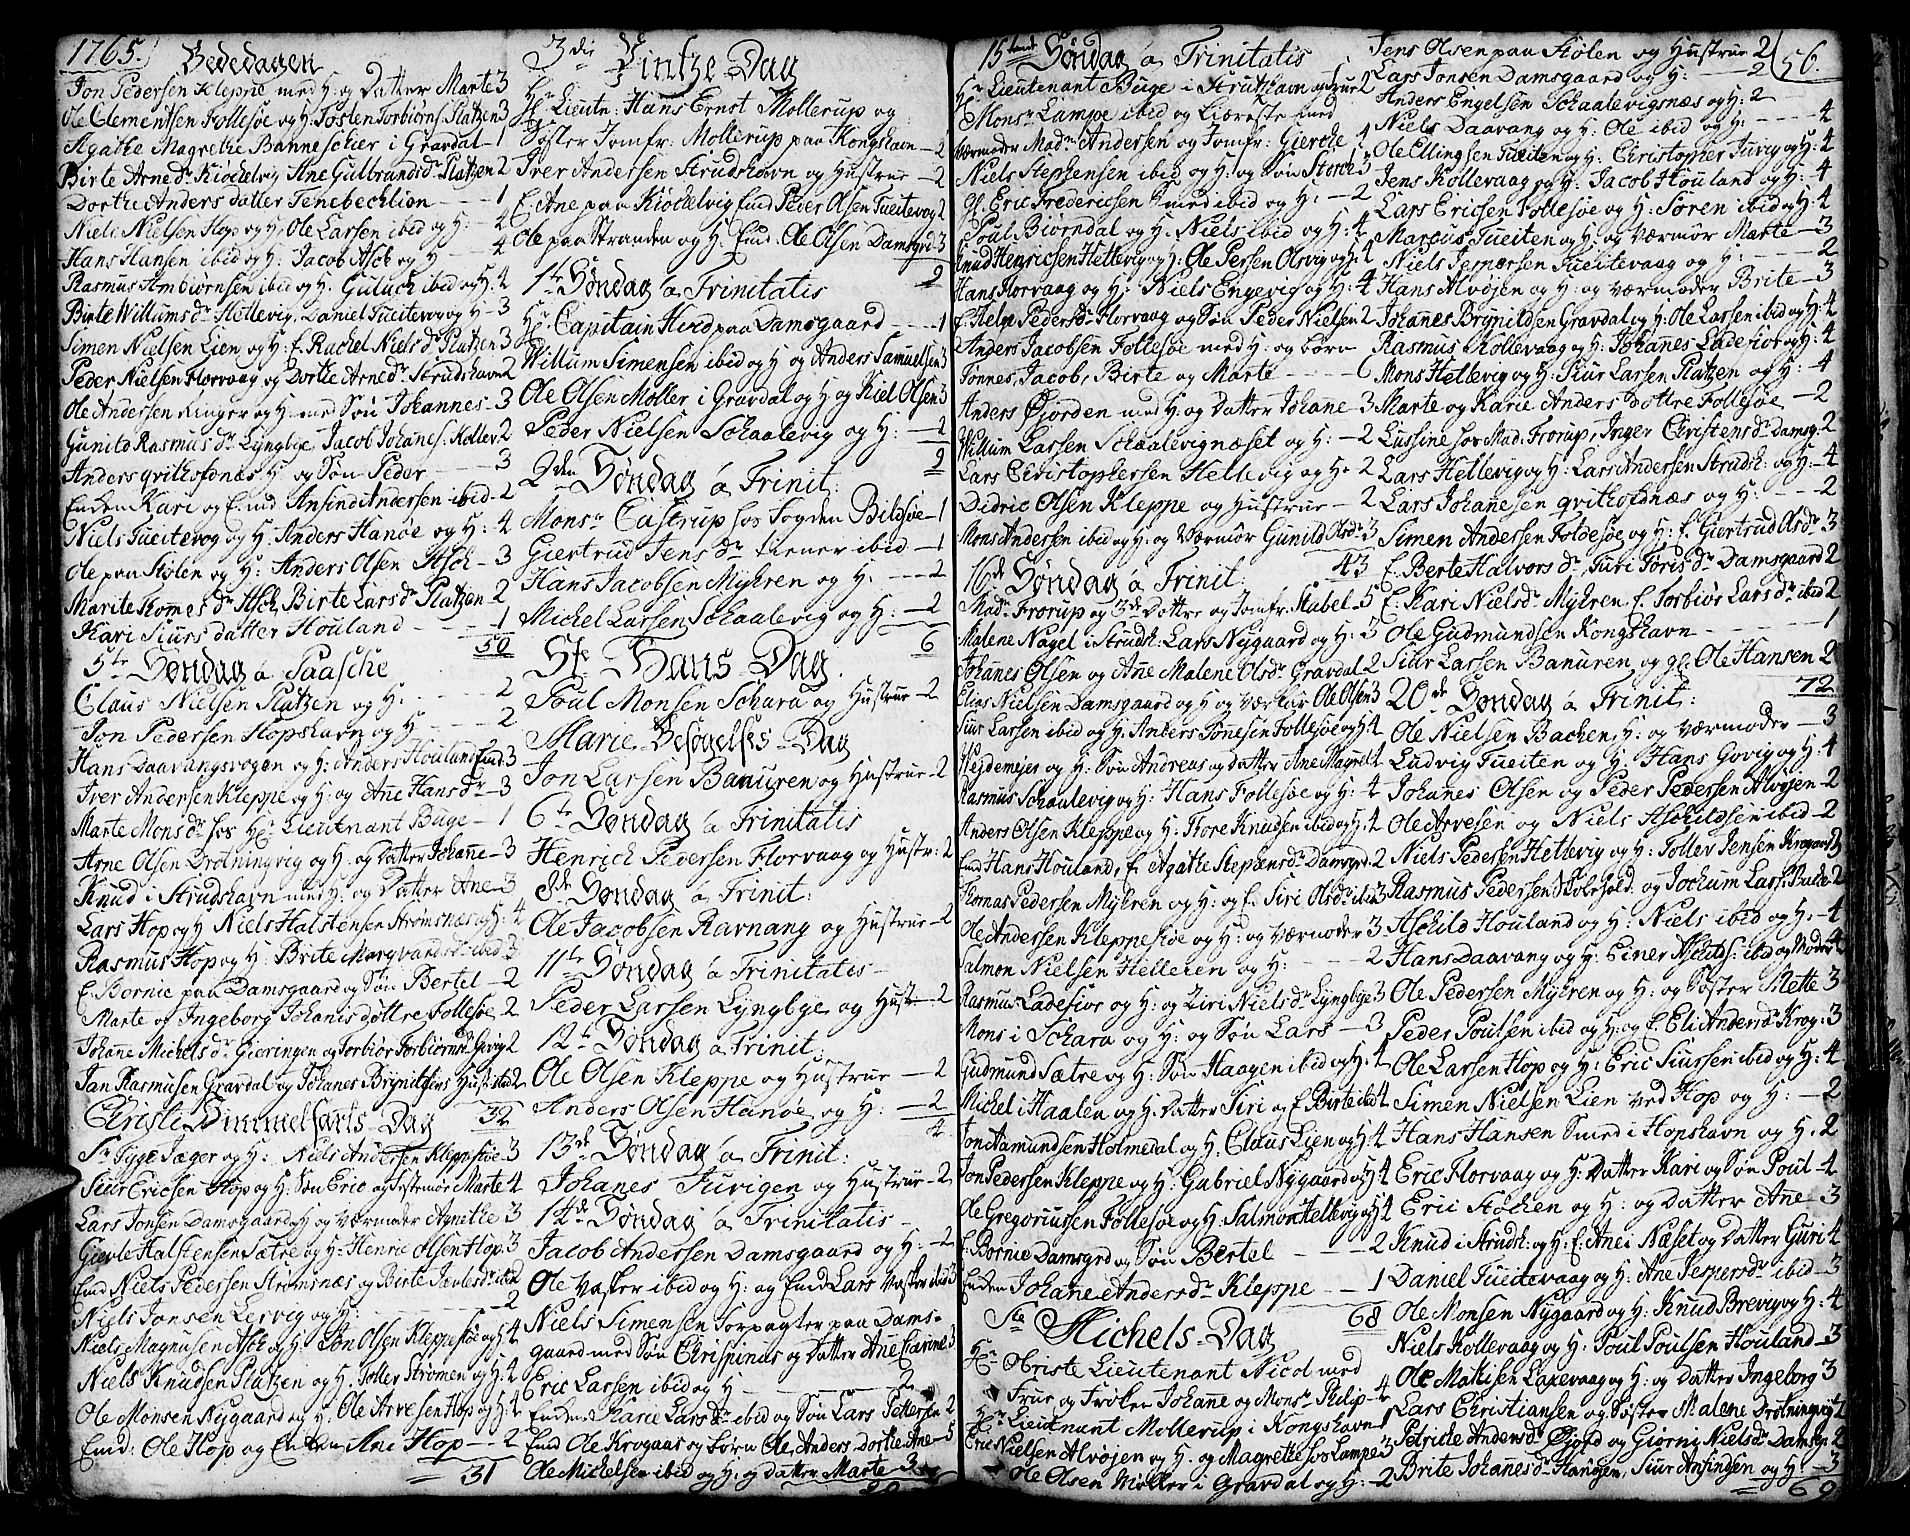 1765.
Bededagen
Jon Pedersen Kleppe med H: og Datter Marte 3
Ole Clementsen Follesøe og H: Tosten Torbiørns: Platzen 3
Agathe Magrethe Banneschier i Gravdal - 1
Birte Arne dr Kiöckelvig Ane Gulbrands dr Platzen 2
Dorthe Anders datter Tenebechlien - 1
Niels Nielsen Hop og H: Ole Larsen ibid og H: 4
Hans Hansen ibid og H: Jacob Asch og H - 4
Rasmus Ambiörnsen ibid og H: Guluch ibid og H: 4
Birte Willums dr Hettevig, Daniel Tueitevog og H - 3
Simen Nielsen Lien og H: E. Rachel Niels dr Platzen 3
Peder Nielsen Florvaag og Dortie Arne dr Strudshavn 2
Ole Andersen Ringer og H: med Søn Johannes - 3
Gunild Rasmus dr Lyngbye Jacob Johanes: Kollev 2
Anders qvithofdnæs H og Søn Peder - 3
Enken Kari og Emd Anfind Anærsen ibid - 2
Niels Tueitevog og H. Anders Hanøe og H: 4
Ole paa Stølen og H: Anders Olsen Asch - 3
Marite Thomes dr Asch, Birte Lars dr Platzen - 2
Kari Siurs datter Houland - 1
50
5te Søndag a Paasche
Claus Nielsen Platzen og H: - 2
Jon Pedersen Hopshavn og H - 2
Hans Daavangsvogen og H: Anders Houland Emd: 3
Iver Andersen Kleppe og H: og Ane Hans dr - 3
Marte Mons dr hos Hr Lieutnant Buge - 1
Arne Olsen Drotningvig og H: og Datter Johane - 3
Knud i Strudshavn med H: og Datter Ane - 3
Lars Hop og H Niels Halstensen Strømsnæs og H: 4
Rasmus Hop og H: Brite Marqvards dr ibid 3
E. Bornie paa Damsgaard og Søn Bertel - 2
Marte og Ingeborg Johanis döttre Follesøe 2
Johane Michels dr Gieringen og Torbiør Torbiørns dr Gövig 2
Jan Rasmusen Gravdal og Johanes Brynildsens Hust: ibid 2
32
Christi Himmelfarts-Dag
Sr Tyge Jæger og H: Niels Andersen Kleppesöe 3
Siur Ericsen Hop og H: Søn Eric og Festemøe Marte 4
Lars Jonsen Damsgaard og H og Værmoder Agnethe 3
Gievle Halstensen Sætre og H: Henric Olsen Hop. 3
Emd Niels Pedersen Strømsnæs og Birte Joels dr ibid 2
Niels Jonsen Lervig og H: - 2
Niels Magnusen Asch og H: Jon Olsen Kleppesøe og H: 4
Niels Knudsen Platzen og H: Toller Strømen og H: 4
Ole Monsen Nygaard og H: Ole Arvesen Hop og H: 4
Emd: Ole Hop og Enken Ane Hop - 2
31
3die Pintze-Dag
Hr Lieutn: Hans Ernst Mollerup og
Søster Jomfr: Mollerup paa Kongshavn - 2
Iver Andersen Strudshavn og Hustrue - 2
E. Ane paa Kiöckelvig Emd Peder Olsen Tueitevog 2
Ole paa Stranden og H: Emd: Ole Olsen Damsgrd 3
9
1te Søndag a Trinitatis
Hr Capitain Hird paa Damsgaard - 1
Willum Simensen ibid og H og Anders Samuelsen 3
Ole Olsen Møller i Gravdal og H og Kiel Olsen 3
Peder Nielsen Schaalevig og H: - 2
9
2den Søndag a Trinit:
Monsr Castrup hos Fogden Bildsøe - 1
Giertrud Jens dr tiener ibid - 1
Hans Jacobsen Myhren og H: - 2
Michel Larsen Schaalevig og H: - 2
6
Ste Hans-Dag
Poul Monsen Schara og Hustrue - 2
Marie Besøgelses-Dag
Jon Larsen Banuren og Hustrue - 2
6te Søndag a Trinitatis
Henrich Pedersen Florvaag og Hustr: 2
8de Søndag a Trinit:
Ole Jacobsen Ravnang og Hustrue - 2
11te Søndag a Trinitatis -
Peder Larsen Lyngbye og Hust - 2
12te Søndag a Trinit:
Ole Olsen Kleppe og Hustrue - 2
Anders Olsen Hanøe, og H: - 2
4
13de Søndag a Trinit:
Johanes Jurigen og Hustrue - 2
14de Søndag a Trinitatis -
Jacob Andersen Damsgaard og H: - 2
Ole Vasker ibid og H: og Emd Lars Vasker ibid 3
Niels Simensen Forpagter paa Dams-
gaard med Søn Chrispinus og Datter Ane Carine 3
Eric Larsen ibid og H - 2
Enken Karie Lars dr ibid og Søn Lars Pettersen 2
Emd Ole Krogaas og børn Ole, Anders, Dortie, Ane - 5
Ole Michelsen ibid og H: og Datter Marte 3
15tende Søndag a Trinitatis
Hr Lieutenant Buge i Strudshavn og frue 2
Monsr Lampe ibid og Liæreste med
Værmoder Madr Andersen og Jomfr: Giercke 4
Niels Stephensen ibid og H: og Søn Storch 3
Gl. Eric Fredericsen Smed ibid og H: - 2
Poul Biørndal og H: Niels ibid og H: 4
Knud Henricsen Hettevig og H: Ole Persen Olsvig og H: 4
Hans Florvaag og H: Niels Engevig og H: 4
E. Helge Peders dr Florvaag og Søn Peder Nielsen 2
Anders Jacobsen Follesøe med H: og børn
Tønnes, Jacob, Birte og Marte - 6
Anders Øjorden med H: og Datter Johane - 3
Willum Larsen Schaalevignæset og H: - 2
Lars Christophersen Hettevig og H: 2
Didric Olsen Kleppe og Hustrue - 2
Mons Andersen ibid og H: og Værmör Gunild Ols dr 3
43
16de Søndag a Trinit:
Madr Frorup og 3de Døttre og Jomfr: Stabel - 5
Malene Nagel i Strudsh: Lars Nygaard og H: 3
Johanes Olsen og Ane Malene Ols dr Gravdal 2
Elias Nielsen Damsgaard og H og Værfar Ole Olsen 3
Siur Larsen ibid og H: Anders Tönesen Follesøe og H: 4
Hejdemejer og H: Søn Andreas og Datter Ane Magret 4
Rasmus Schaalevig og H: Hans Follesøe og H: 4
Anders Olsen Kleppe og H: Tore Knudsen ibid og H: 4
Emd Hans Houland, E. Agathe Stephens dr Damsgrd. 2
Thomas Pedersen Myhren og H: og E. Siri Ols dr ibid 3
Ole Andersen Kleppesöe og H: og Værmoder 3
Salmon Nielsen Helleren og H: - 2
Rasmus Ladefior og H: og Ziri Niels dr Lyngbye 3
Mons i Schara og H: og Søn Lars - 3
Gudmund Sætre og H: Søn Haagen ibid og H: 4
Michel i Haalen og H: Datter Siri og E. Birte ibid 4
Jon Aamundsen Holmedal og H: Claus Lien og H: 4
Jon Pedersen Kleppe og H: Gabriel Nygaard og H 4
Ole Gregoriussen Follesøe og H: Salmon Hettevig og H 4
E. Bornie Damsgrd og Søn Bertel - 2
Enken Johane Anders dr Kleppe - 1
68
Ste Michels-Dag
Hr Obriste Lieutenant Nicol med
Frue og Frøken Johane og Monsr Philip - 4
Hr Lieutnant Mollerup i Kongshavn 1
Eric Nielsen Alvøjen og H: og Magrethe hos Lampe 3
Ole Olsen Møller i Gravdal og H: - 2
Jens Olsen paa Stølen og Hustrue 2
56.
Lars Jonsen Damsgaard og H: - 2
Anders Engelsen Schaalevigsnæs og H: 2
Niels Daavang og H: Ole ibid og H: - 4
Ole Ellingsen Tueiten og H: Christopher Jurig og H: 4
Jens Kollevaag og H: Jacob Houland og H: 4
Lars Ericsen Follesøe og H: Sören ibid og H: 4
Marcus Tueiten og H: og Værmör Marte - 3
Niels Jespersen Tueitevaag og H: - 2
Hans Alvøjen og H: og Værmoder Brite - 3
Johanes Brynildsen Gravdal og H: Ole Larsen ibid og H: 4
Rasmus Kollevaag og H: Johanes Ladefior og H: 4
Mons Hettevig og H: Siur Larsen Platzen og H: 4
Marte og Karie Anders Døttre Follesøe - 2
Lussine hos Mad: Frorup, Inger Christens dr Damsg: 2
Lars Hettevig og H: Lars Andersen Strudsh: og H: 4
Lars Johanesen qvithofdnæs og H: - 2
Simen Andersen Foldesøe og H: E. Giertrud Ols dr 3
E. Berte Halvors dr Turi Joris dr Damsgaard 2
E. Kari Niels dr Myhren, E. Torbiør Lars dr ibid 2
Ole Gudmundsen Kongshavn - 1
Siur Larsen Banuren, og gl: Ole Hansen 2
72
20de Søndag a Trinit:
Ole Nielsen Bachen, H: og Værmoder - 3
Ludvig Tueiten og H: Hans Govig og H: 4
Johanes Olsen og Peder Pedersen Alvøjen 2
Ole Arvesen og Niels Aschildsen ibid - 2
Niels Pedersen Hettevig og H: Tollev Jensen Krogaas 3
Rasmus Pedersen Skolehold: og Jochum Lars: Bache 2
Aschild Houland og H: Niels ibid og H: - 4
Hans Daavang og H: Einer Aschilds: ibid og Moder 4
Ole Pedersen Myhren og H: og Søster Mette 3
Peder Poulsen ibid og H: og E. Eli Anders dr Krog: 3
Ole Larsen Hop og H: Eric Siursen ibid og H: 4
Simen Nielsen Lien ved Hop og H: - 2
Hans Hansen Smed i Hopshavn og H: 2
Eric Florvaag og H: Datter Kari og Søn Poul - 4
Eric Støchen og H: og Datter Ane 3
Knud i Strudsh: og H: E: Ane i Næset og Datter Guri 4
Daniel Tueitevaag og H: Ane Jespers dr ibid - 3
Ole Monsen Nygaard og H: Knud Brevig og H: 4
Niels Kollevaag og H: Poul Poulsen Houland - 3
Ole Mathisen Laxevaag og H: og Datter Ingeborg 3
Lars Christiansen og Søster Malene Drotningvig 2
Petricke Anders dr Øjord og Giørni Niels dr Damsgr: 2
Brite Johanes dr Hanøjen, Siur Anfindsen og H: - 3
69